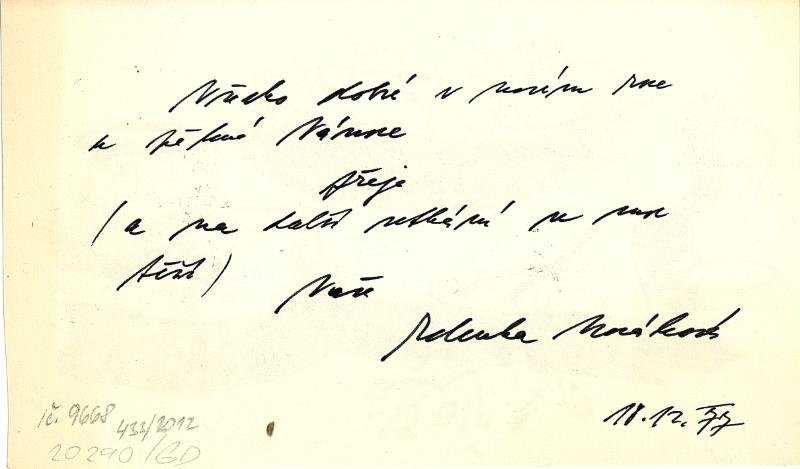 Všecko dobré v novém roce
a pěkné Vánoce
přeje
(a na další setkání se moc
těší)
Vaše
Nováková
18.12.77
ič. 9668
433/2012
20290/GD